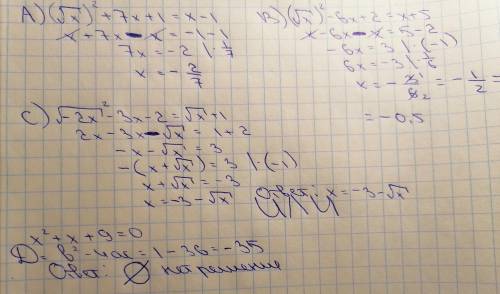 A) (√x)² + 7x + 1 = x - 1
x + 7x - x = -1 - 1
7x = -2 | 1/7
x = - 2/7
B) (√x)² - 6x + 2 = x + 5
x - 6x - x = 5 - 2
-6x = 3 | · (-1)
6x = -3 | 1/6
x = - 3¹/6₂ = - 1/2 =
= -0.5
C) √-2x² - 3x - 2 = √x + 1
2x - 3x - √x = 1 + 2
-x - √x = 3
-(x + √x) = 3 | · (-1)
x + √x = -3
x = -3 - √x
Ответ: x = -3 - √x
x² + x + 9 = 0
D = b² - 4ac = 1 - 36 = -35
Ответ: ∅ нет решения